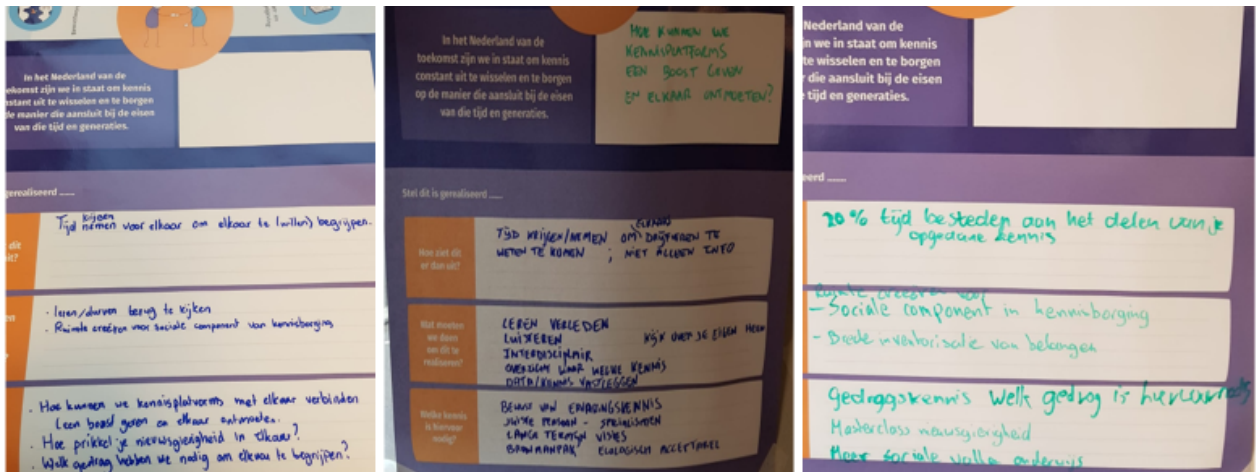 In het Nederland van de
toekomst zijn we in staat om kennis
nstant uit te wisselen en te borgen
de manier die aansluit bij de eisen
van die tijd en generaties.
gerealiseerd ......
krijgen
Tijd nemen voor elkaar om elkaar te (willen) begrijpen.
dit
it?
· leren/durven terug te kijken
· Ruimte creëren voor sociale component van kennisborging
· Hoe kunnen we kennisplatvorms met elkaar verbinden
een boost geven en elkaar ontmoeten.
· Hoe prikkel je nieuwsgierigheid in elkaar?
· Welk gedrag hebben we nodig om elkaar te begrijpen?
In het Nederland van de
toekomst zijn we in staat om kennis
constant uit te wisselen en te borgen
op de manier die aansluit bij de eisen
van die tijd en generaties.
HOE KUNNEN WE
KENNISPLATFORMS
EEN BOOST GEVEN
EN ELKAAR ONTMOETEN?
Stel dit is gerealiseerd ......
Hoe ziet dit
er dan uit?
TIJD KRIJGEN/NEMEN OM DRIJFVEREN TE
WETEN TE KOMEN ; NIET ALLEEN INFO
Wat moeten
we doen
om dit te
realiseren?
LEREN VERLEDEN
LUISTEREN KIJK OVER JE EIGEN
INTERDISCIPLINAIR
OVERZICHT WAAR WELKE KENNIS
DATA/KENNIS VASTLEGGEN
Welke kennis
is hiervoor
nodig?
BEWUST VAN ERVARINGSKENNIS
JUISTE PERSOON - SPECIALISMEN
LANGE TERMIJN VISIES
ECOLOGISCH ACCEPTABEL
Nederland van de
jn we in staat om kennis
te wisselen en te borgen
r die aansluit bij de eisen
tijd en generaties.
eerd ......
20% tijd besteden aan het delen van je
opgedane kennis
Ruimte creëren voor
- Sociale component in kennisborging
- Brede inventarisatie van belangen
Gedragskennis Welk gedrag is hiervoor nodig
Masterclass nieuwsgierigheid
Meer sociale vakken onderwijs